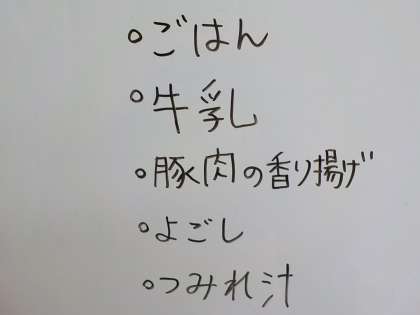 。ごはん
。牛乳
。豚肉の香り揚げ
。よごし
。つみれ汁